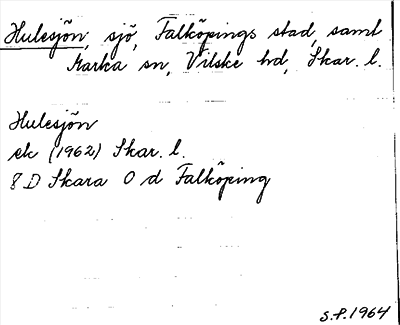 Hulesjön, sjö, Falköpings stad, samt
Karka sn, Vilske hd, Skar. l.
Hulesjön
ek (1962) Skar. l.
8 D Skara 0 d Falköping
S.P. 1964